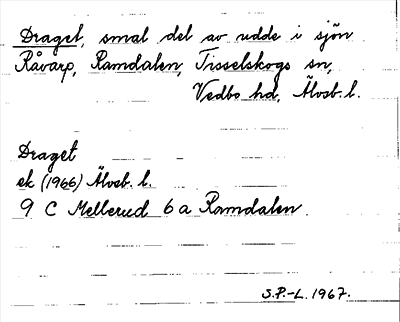 Draget, smal del av udde i sjön
Råvarp, Ramdalen, Tisselskogs sn,
Vedbo hd, Älvsb. l.
Draget
ek (1966) Älvsb. l.
9 C Mellerud 6 a Ramdalen.
S.P.-L. 1967.